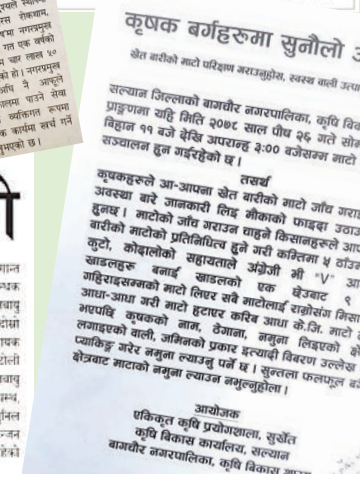 रस रोकथाम,
षमा नगरप्रमुख
गत एक वर्षको
म चार लाख ५०
को हो। नगरप्रमुख
अघि नै आफूले
कालमा पाउने सेवा
व्यक्तिगत रूपमा
क कार्यमा खर्च गर्ने
कृषक बर्गहरुमा सुनौलो
खेत बारीको माटो परिक्षण गराउनुहोस, स्वस्थ बाली उत्पा
सल्यान जिल्लाको बागचौर नगरपालिका, कृषि विक
प्राङ्गणमा यहि मिति २०७८ साल पौष २६ गते सोम
बिहान ११ बजे देखि अपरान्ह ३:०० बजेसम्म माटो
सञ्चालन हुन गईरहेको छ।
तसर्थ
कृषकहरुले आ-आफ्ना खेत बारीको माटो जाँच गरा
अवस्था बारे जानकारी लिई मौकाको फाइदा उठाउ
हुनछ। माटोको जाँच गराउन चाहने किसानहरुले आ
बारीको माटोको प्रतिनिधित्व हुने गरी कम्तिमा ५ ठाउँम
कुटो, कोदालोको सहायताले अंग्रेजी भी "V" आ
खाडलहरु बनाई खाडलको एक छेउबाट १
गहिराइसम्मको माटो लिएर सबै माटोलाई राम्रोसंग मिसा
आधा-आधा गरी माटो हटाएर करिब आधा के.जि. माटो
भएपछि कृषकको नाम, ठेगाना, नमुना लिइएको
लगाइएको वाली, जमिनको प्रकार इत्यादी विवरण उल्लेख
प्याकिङ्ग गरेर नमुना ल्याउनु पर्ने छ। सुन्तला फलफूल ब
क्षेत्रबाट माटाको नमुना ल्याउन नभुल्नुहोला।
आयोजक
एकिकृत कृषि प्रयोगशाला, सुर्खेत
कृषि बिकास कार्यालय, सल्यान
बागचौर नगरपालिका, कृषि बिकास